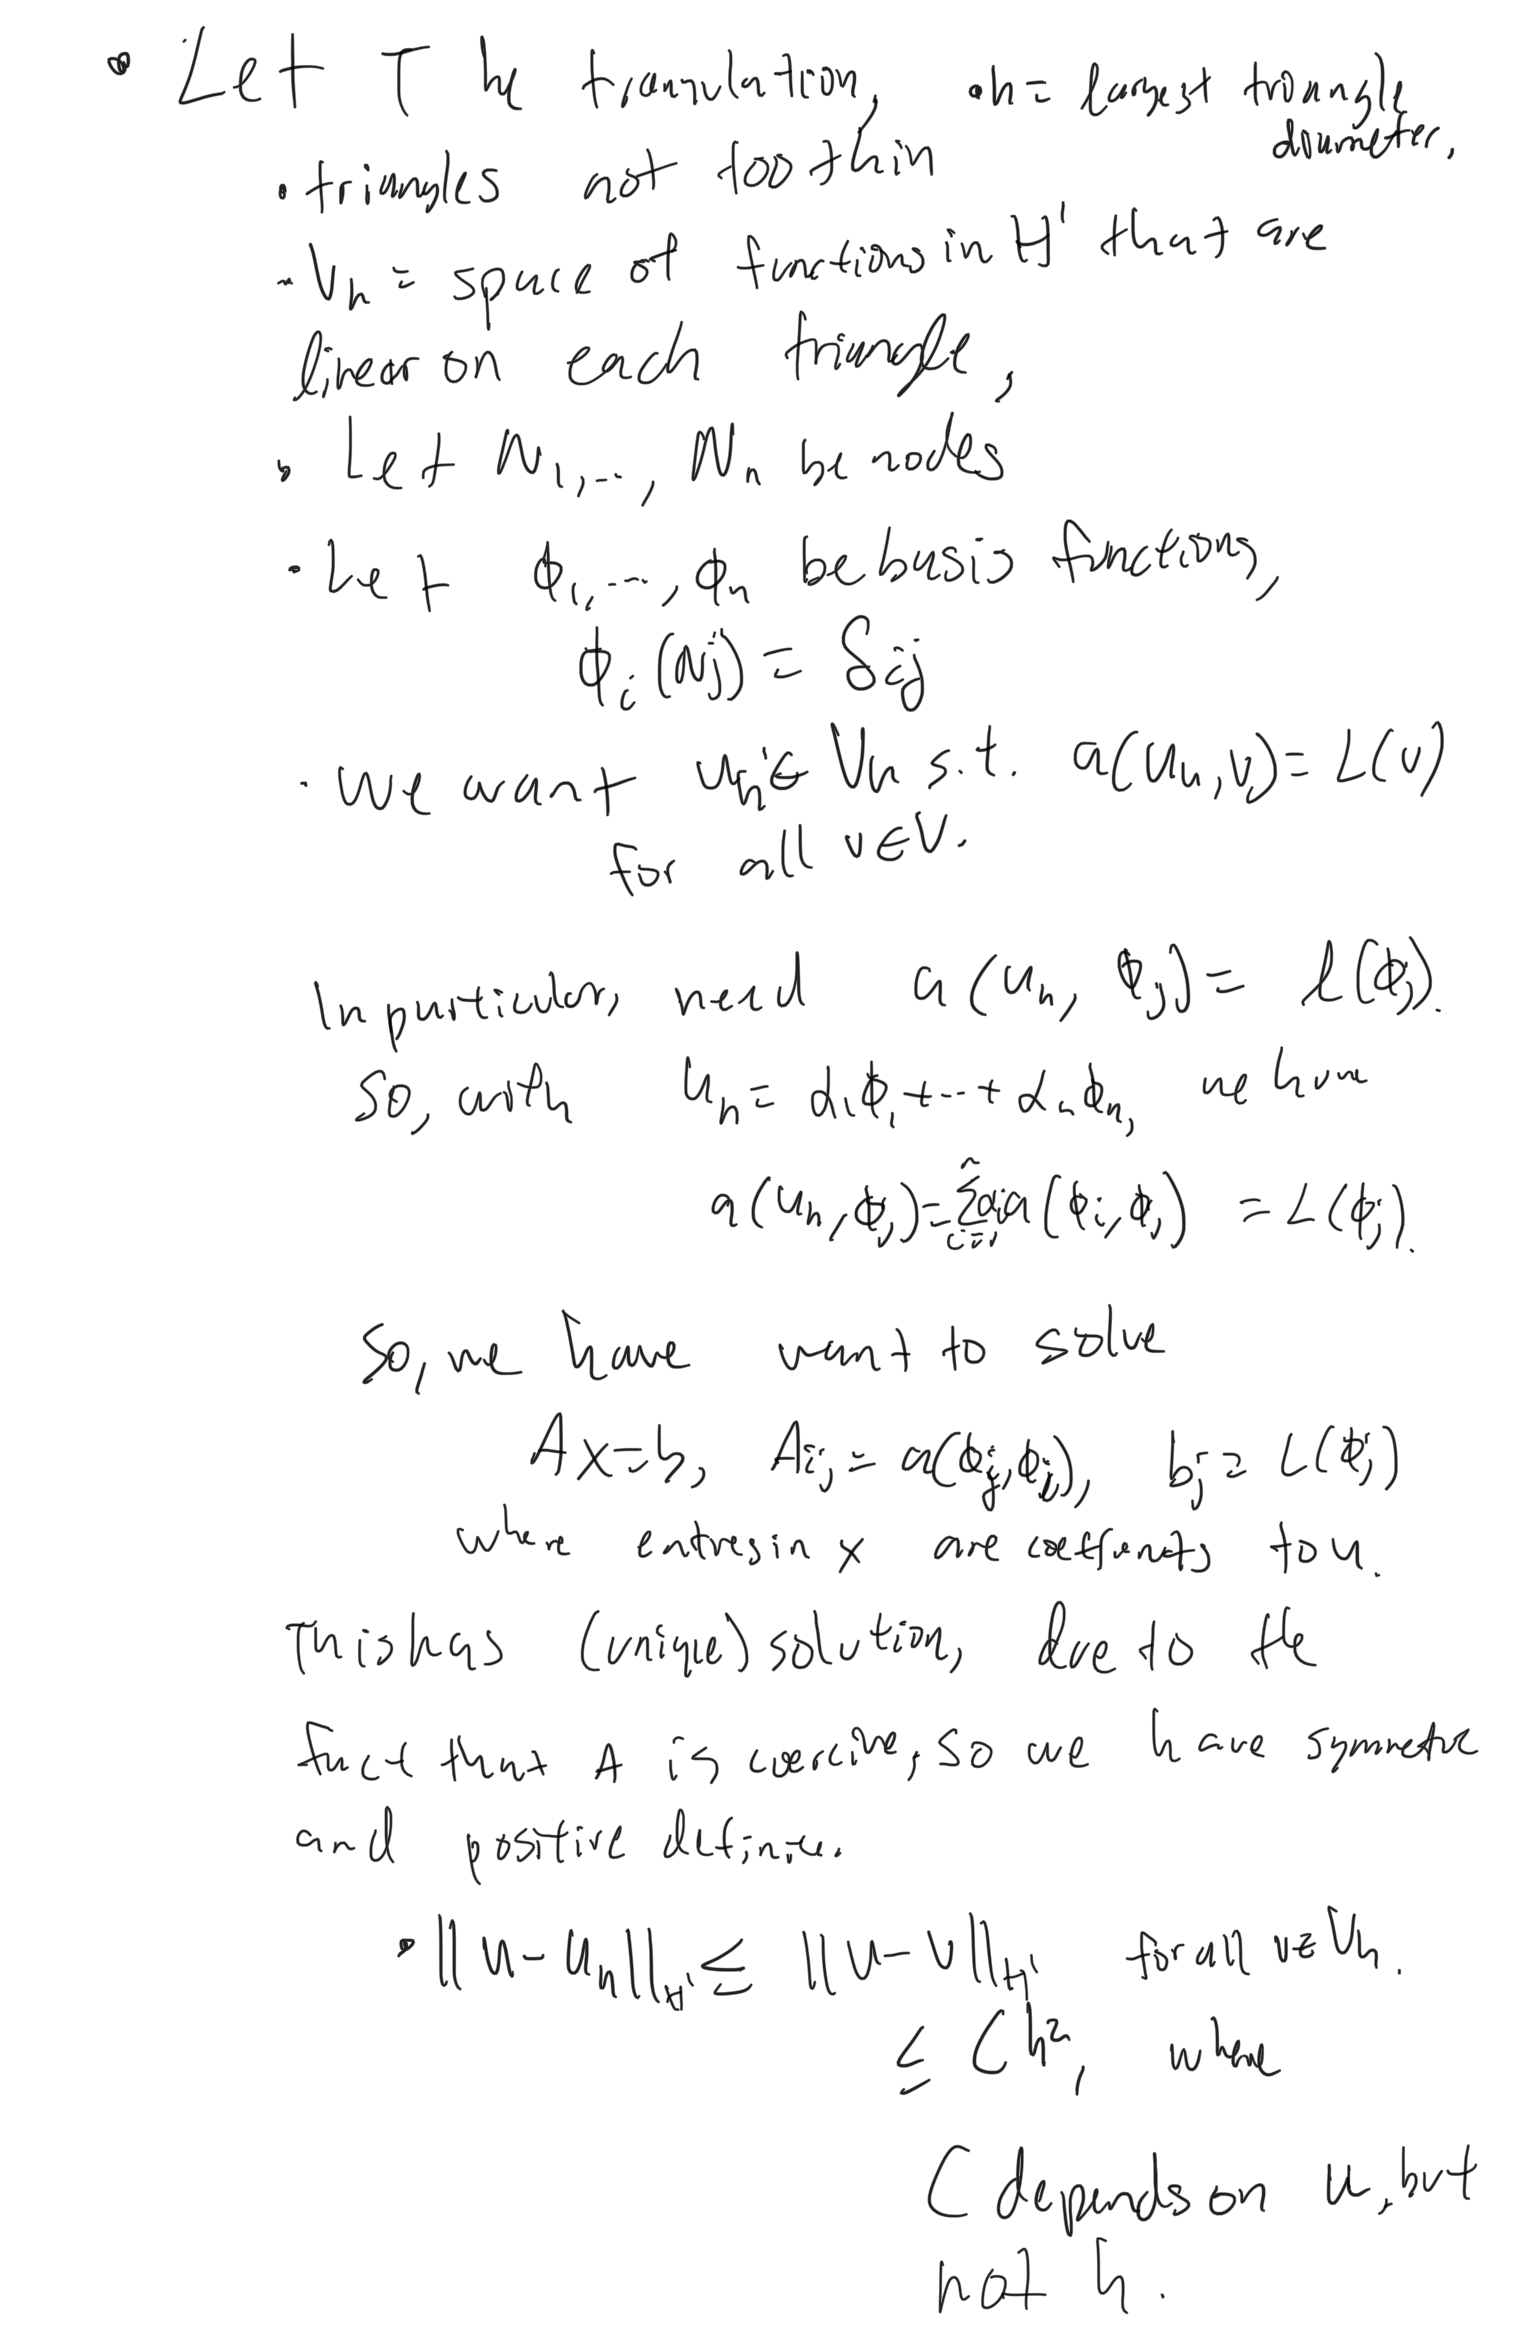 • Let T be tranulation, • h = largest triangle
diameter,
• triangles not too thin
• V_h = space of functions in H¹ that are
linear on each triangle,
• Let N₁,..., Nₙ be nodes
• Let ϕ₁,..., ϕₙ be basis functions,
ϕᵢ(Nj) = δij
• We want u_h ∈ V_h s.t. a(u_h, v) = L(v)
for all v ∈ V.
In particular, need a(u_h, ϕⱼ) = L(ϕⱼ).
So, with u_h = α₁ϕ₁ + ... + αₙϕₙ, we have
a(u_h, ϕⱼ) = Σⁿᵢ₌₁ αᵢa(ϕᵢ, ϕⱼ) = L(ϕⱼ).
So, we have want to solve
Ax = b, Aᵢⱼ = a(ϕⱼ, ϕᵢ), bⱼ = L(ϕⱼ)
where entres in x are coeffients to u.
This has (unique) solution, due to the
fact that A is coercive, so we have symmetric
and positive definite.
• ||u - u_h||_H¹ ≤ ||u - v||_H¹ for all v ∈ V_h.
≤ Ch², where
C depends on u, but
not h.